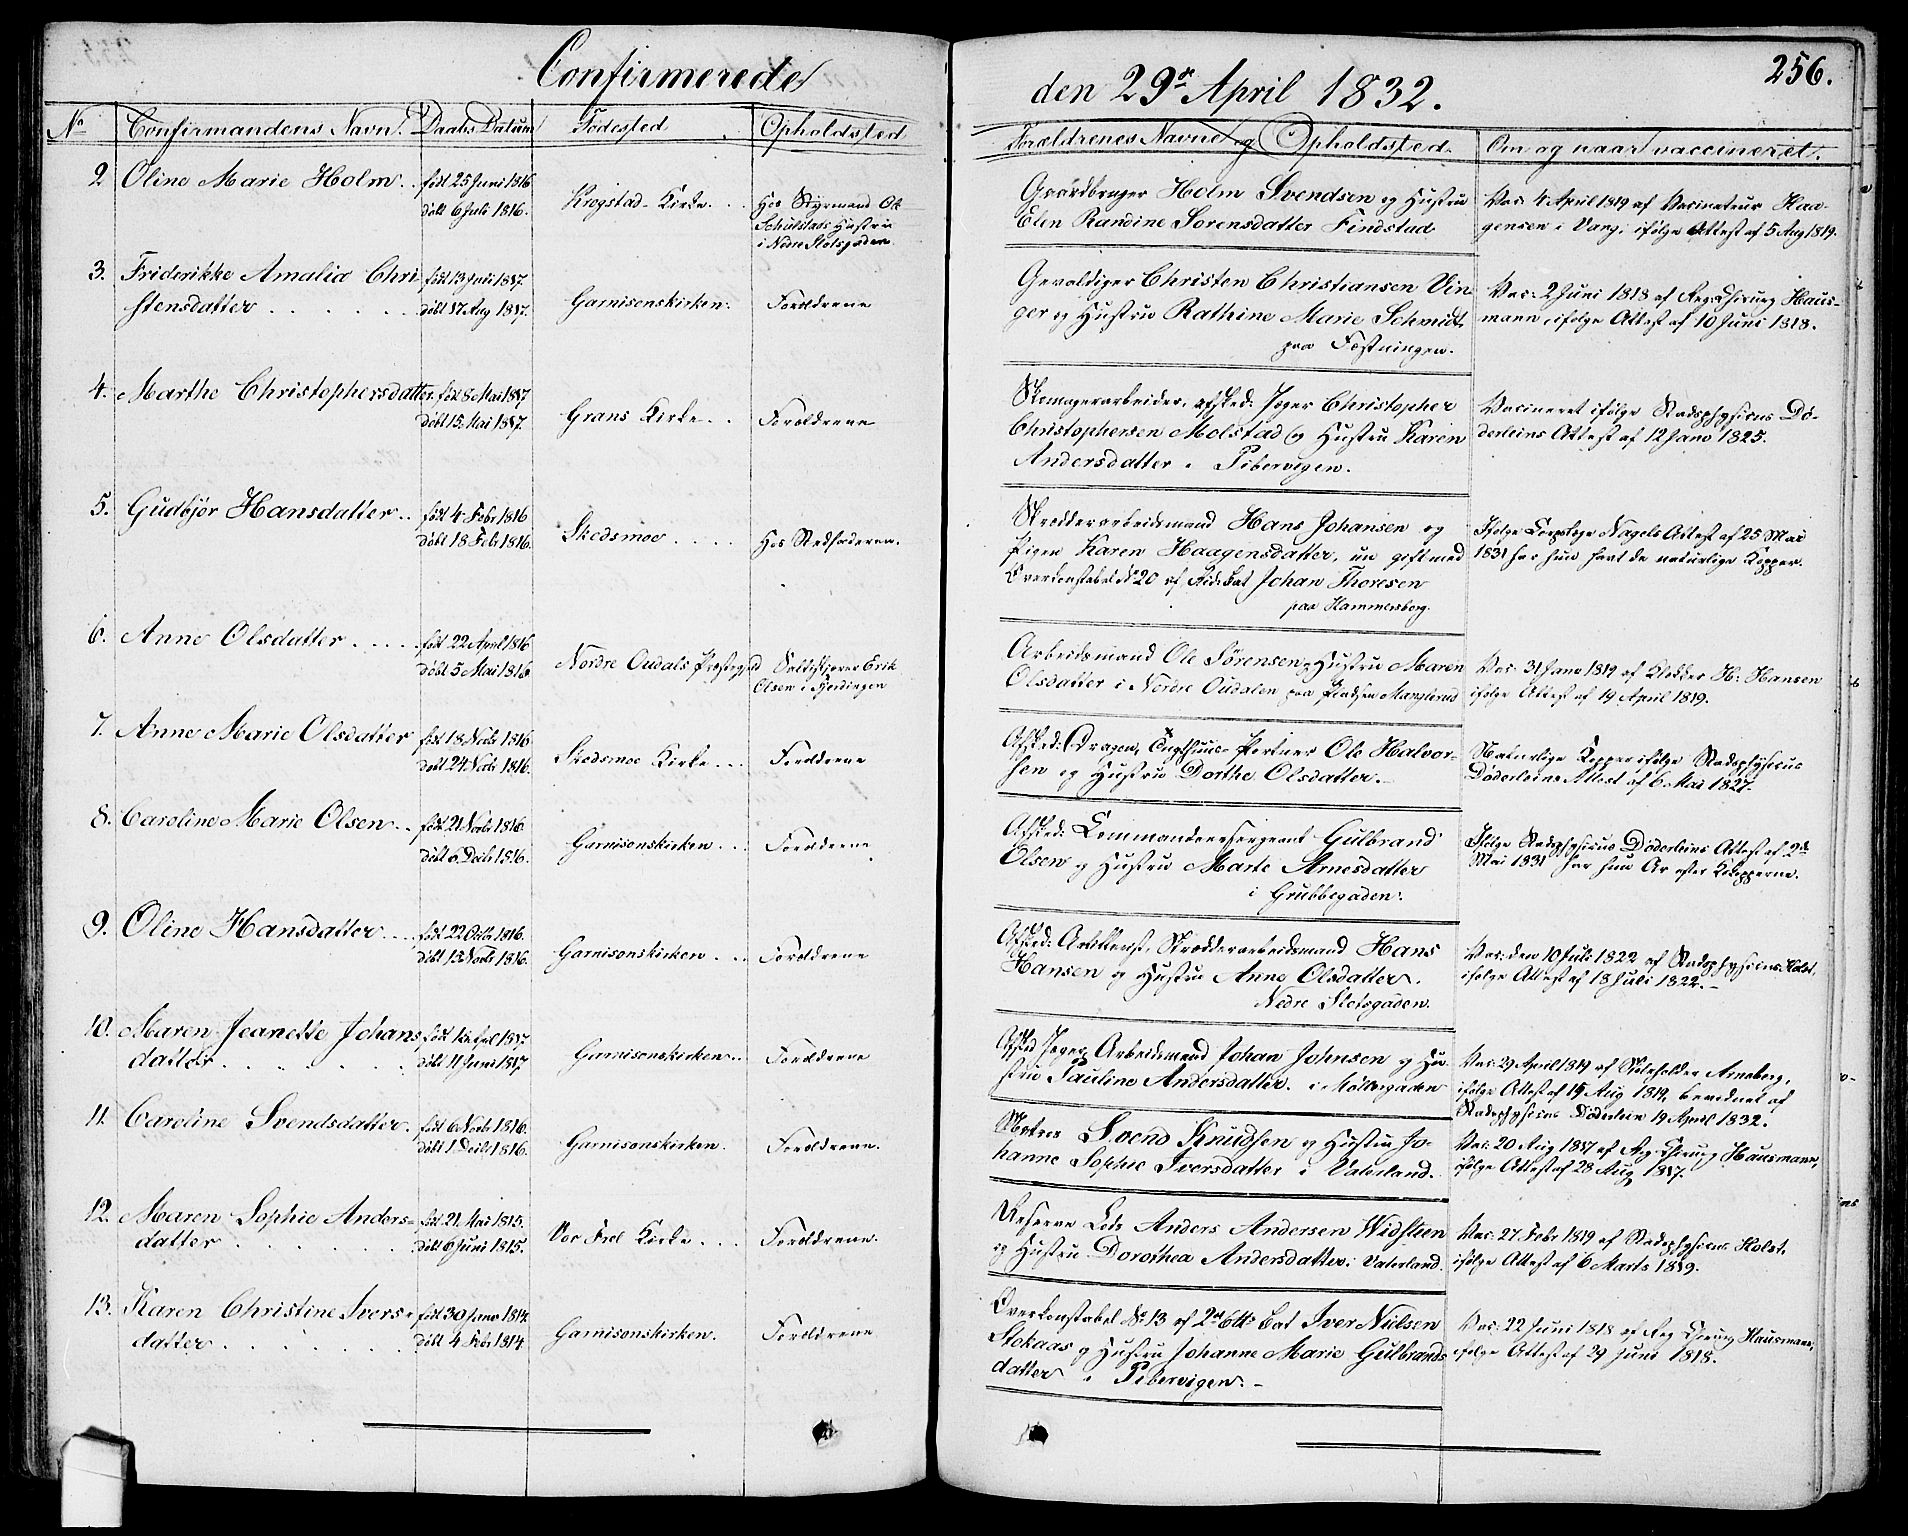 Confirmerede
den 29de April 1832.
256.
No Confirmandens Navn. Daabs Datum Fødested Opholdsted
Forældrenes Navne og Opholdsted. Om og naar vaccineret.
2 Oline Marie Holm. født 25 Juni 1816
døbt 6 Juli 1816.
Krogstad Kirke.
Hos Styrmand
Schulstads Hustru
i Nedre Slotsgaden.
Gaardbruger Holm Svendsen og Hustru
Elen Randine Sørensdatter Findstad.
Vac: 4 April 1819 af Vacinateur Haa-
gensen i Vang, ifølge Attest af 5 Aug 1819.
3. Friderikke Amalia Chri
stensdatter
født 13 Juli 1817.
døbt 17 Aug 1817.
Garnisonskirken.
Forældrene
Gevaldiger Christen Christiansen Vin
ger og Hustru Rathine Marie Schmidt
paa Fæstningen.
Vac: 2 Juni 1818 af Reg: Chirurg Haus-
mann, ifølge Attest af 10 Juni 1818.
4. Marthe Christophersdatter.
født 8 Mai 1817
døbt 15 Mai 1817.
Grans Kirke.
Forældrene
Skomagerarbeider, afsked: Jæger Christopher
Christophersen Molstad og Hustru Karen
Andersdatter i Pibervigen.
Vacineret ifølge Stadsphysicus Dø-
derleins Attest af 12 Janv 1825.
5. Gudbjør Hansdatter
født 4 Febr 1816
døbt 18 Febr 1816.
Skedsmoe
Hos Stedfaderen.
Skrædderarbeidsmand Hans Johansen og
Pigen Karen Haagensdatter, nu gift med
Overkonstabel No 20 af Bat Johan Thoresen
paa Hammersborg.
Ifølge Corpslæge Nagels Attest af 25 Mai
1831 har hun havt de naturlige Kopper.
6. Anne Olsdatter
født 22 April 1816
døbt 5 Mai 1816
Nordre Oudals Præstegjeld
Erik
Olsen i Fjerdingen
Arbeidsmand Ole Sørensen og Hustru Maren
Olsdatter i Nordre Oudalen paa Pladsen Manglerud
Vac: 31 Janv 1819 af Klokker H: Hansen
ifølge Attest af 14 April 1819.
7. Anne Marie Olsdatter
født 18 Novbr 1816
døbt 24 Novbr 1816.
Skedsmoe Kirke
Forældrene
Afsked: Dragon, Tugthuus-Portner Ole Halvor-
sen og Hustru Dorthe Olsdatter.
Naturlige Kopper ifølge Stadsphysicus
Døderleins Attest af 6 Mai 1827.
8. Caroline Marie Olsen
født 21 Novbr 1816.
døbt 6 Decbr 1816.
Garnisonskirken
Forældrene
Afsked: Commandeersergeant Gulbrand
Olsen og Hustru Marte Arnesdatter
i Grubbegaden.
Ifølge Stadsphysicus Døderleins Attest af 2de
Mai 1831 har hun Ar efter Kopperne.
9. Oline Hansdatter
født 22 Octbr 1816.
døbt 13 Novbr 1816.
Garnisonskirken
Forældrene
Afsked: Artillerist, Skrædderarbeidsmand Hans
Hansen og Hustru Anne Olsdatter.
Nedre Slotsgaden.
Vac: den 10 Juli 1822 af Stadsphysicus Holst,
ifølge Attest af 18 Juli 1822.
10. Maren Jeanette Johans
datter
døbt 11 Juni 1817
Garnisonskirken
Forældrene
Afsked Jæger, Arbeidsmand Johan Johnsen og Hu-
stru Pauline Andersdatter. i Møllergaden
Vac: 29 April 1819 af Skoleholder Arneberg,
ifølge Attest af 15 Aug 1819, bevidnet af
Stadsphysicus Døderlein 19 April 1832.
11. Caroline Svendsdatter
født 6 Novbr 1816.
døbt 1 Decbr 1816.
Garnisonskirken.
Forældrene.
Svend Knudsen og Hustru Jo-
hanne Sophie Iversdatter i Vaterland.
Vac: 20 Aug 1817 af Reg: Chirurg Hausmann,
ifølge Attest af 28 Aug 1817.
12. Maren Sophie Anders-
datter
født 21 Mai 1815.
døbt 6 Juni 1815.
Vor Frel Kirke
Forældrene.
Reserve Lods Anders Andersen Widsteen
og Hustru Dorothea Andersdatter i Vaterland.
Vac: 27 Febr 1819 af Stadsphysicus Holst,
ifølge Attest af 6 Marts 1819.
13. Karen Christine Ivers-
datter
født 30 Janv 1814
døbt 4 Febr 1814
Garnisonskirken.
Forældrene
Overkonstabel No 13 af 2det Bat Iver Nielsen
Stokaas og Hustru Johanne Marie Gulbrands
datter i Pibervigen.
Vac: 22 Juni 1818 af Reg Chirurg Hausmann,
ifølge Attest af 29 Juni 1818.